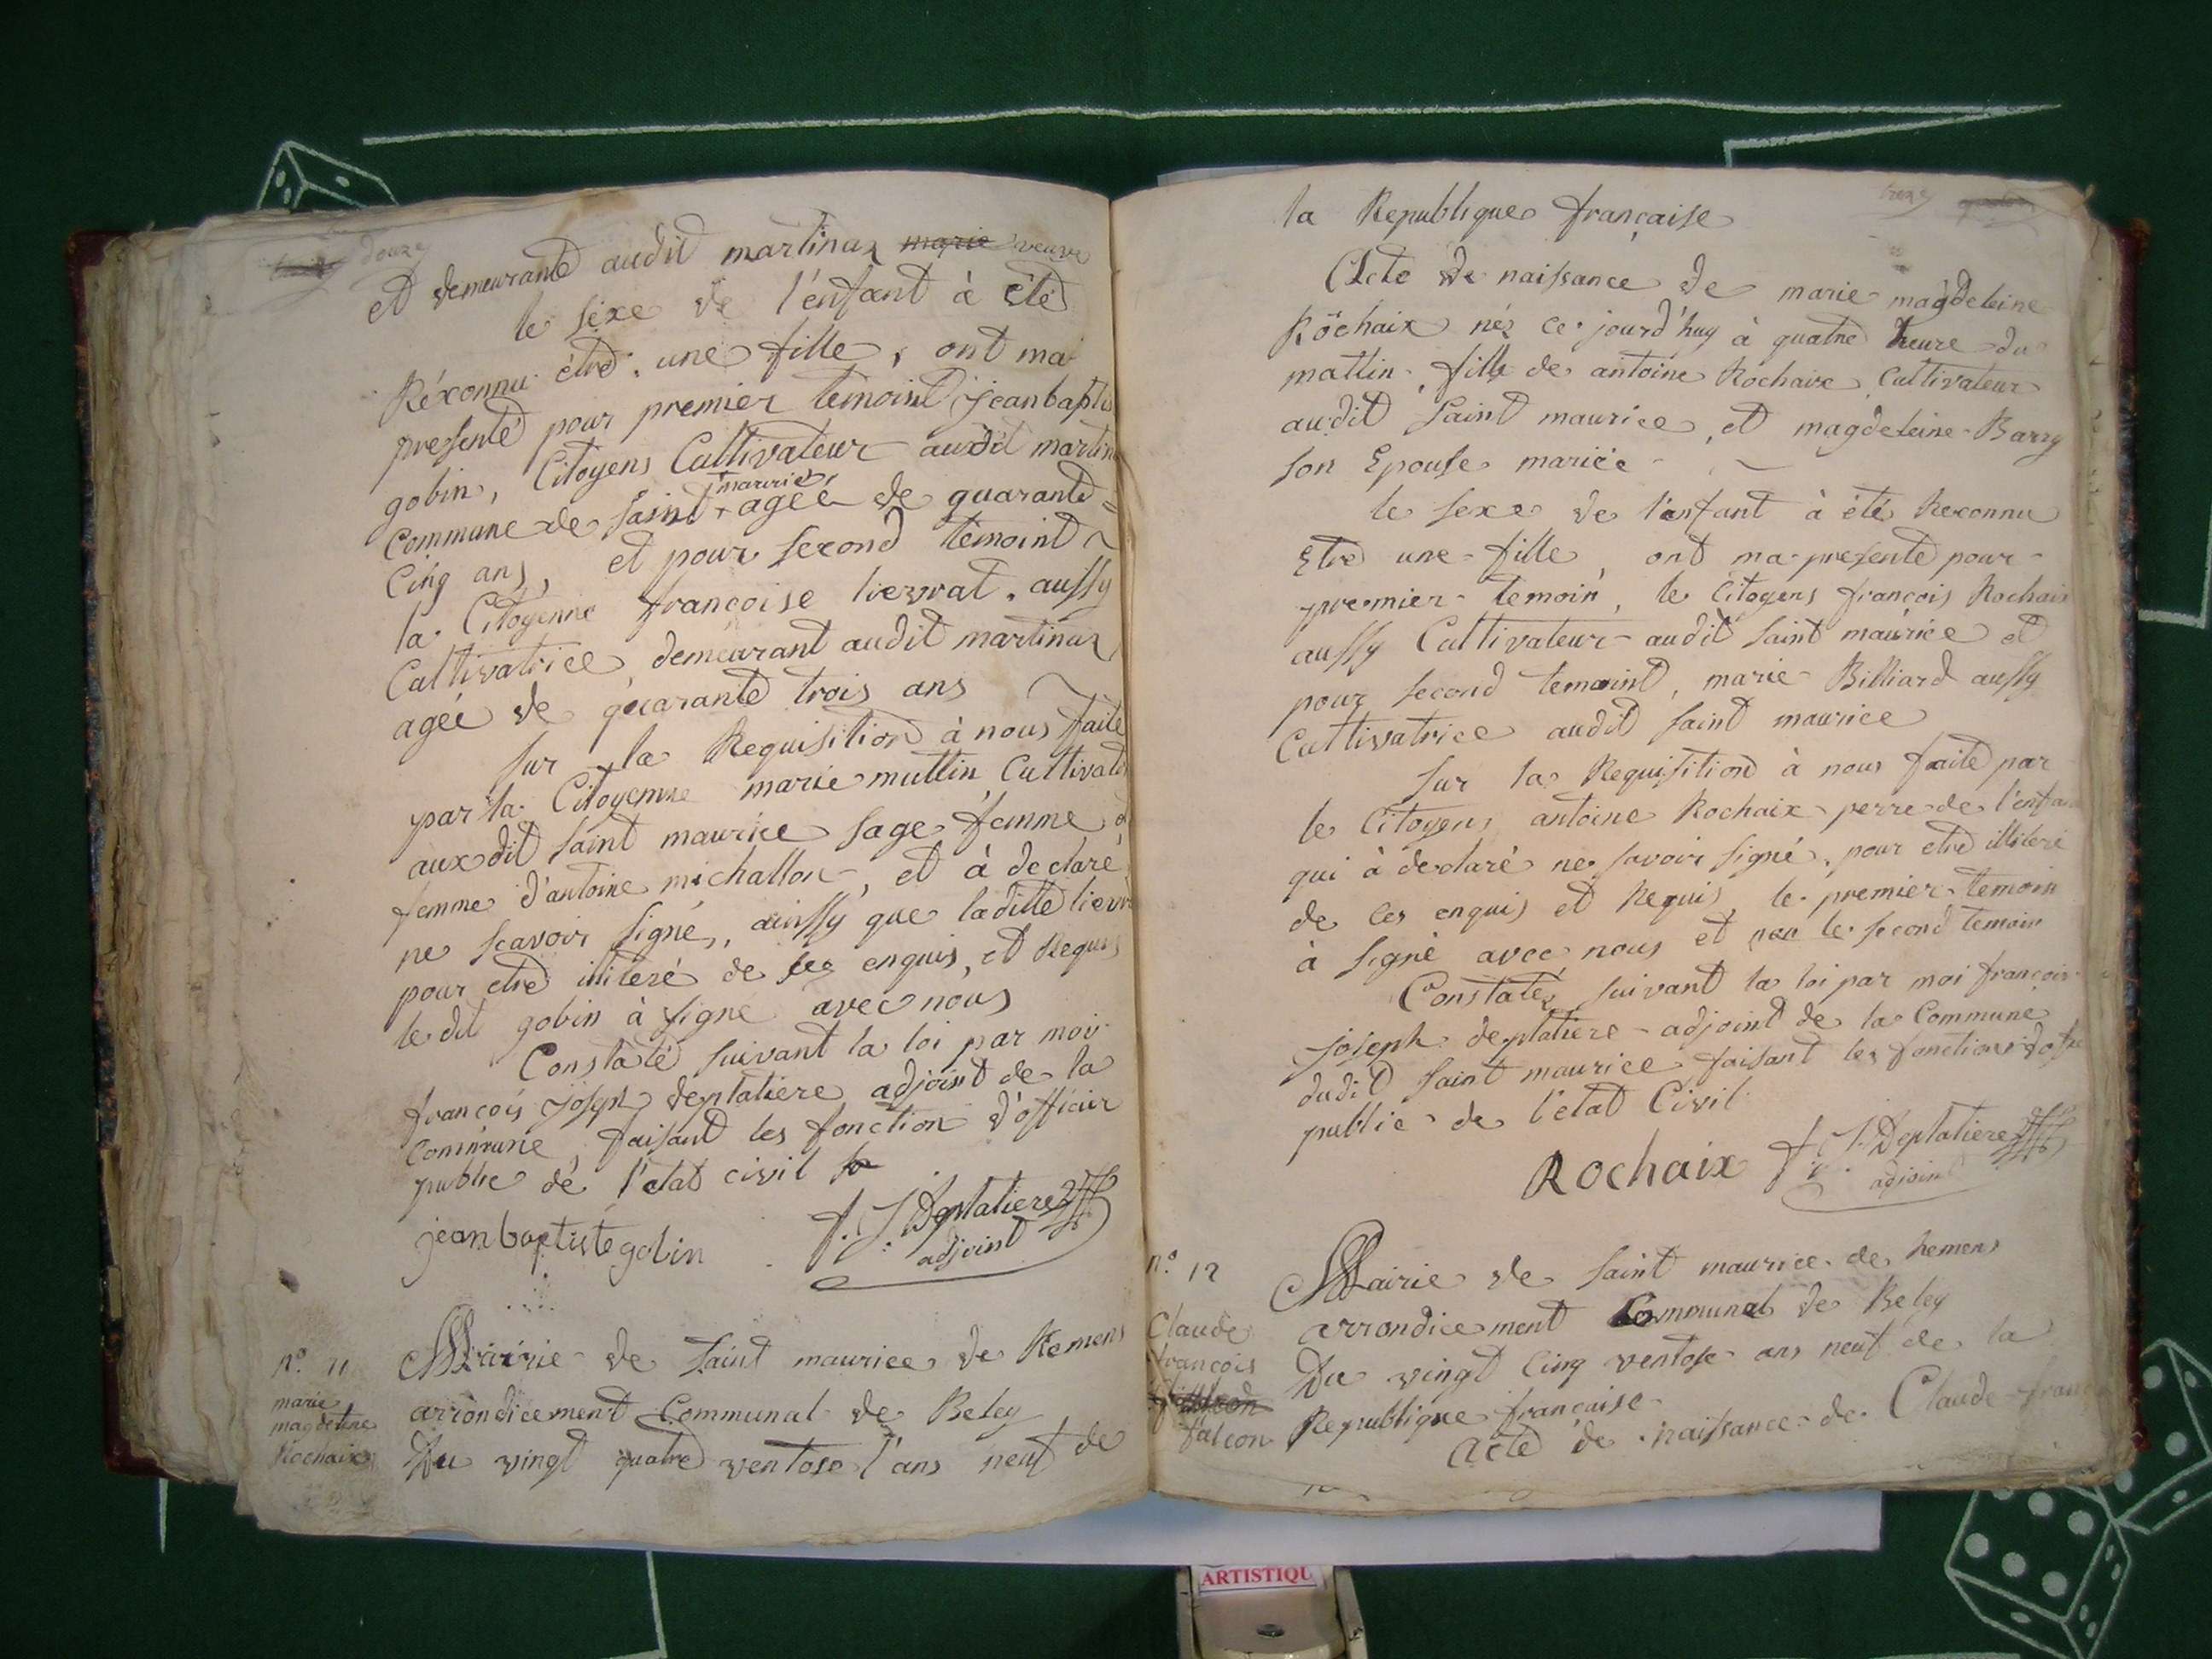 douze
et demeurante audit martinaz marie veuve
le sexe de l'enfant à été
Réxonnu être une fille, ont ma
presenté pour premier temoint jean baptis
gobin, Citoyens Cultivateur auxdit martin
marrie
Commune de saint + agée de quarante =
Cinq ans, et pour second temoint ~
la Citoyenne françoise lievrat, aussy
Cultivatrice, demeurant audit martinaz
agée de quarante trois ans ~
sur la Requisition à nous faite
par la Citoyenne marie muttin Cultivat
auxdit saint maurice sage femme et
femme d'antoine michallon, et à declaré
ne scavoir signé, ainssy que laditte lievr
pour etre illiteré de ces enquis, et Requis
le dit gobin à signé avec nous
Constaté suivant la loi par moi
françois joseph deplatiere adjoint de la
Commune, faisant les fonction d'officier
public de l'état civil
jean baptiste gobin F. J. Deplatiere
adjoint
n.° 11
marie
magdeleine
Rochaix
Mairie de saint maurice de Remens
arrondicement Communal de Beley
Du vingt quatre ventose l'ans neuf de
treze
la Republique française
Acte de naissance de marie magdeleine
Rochaix néz ce jourd'huy à quatre heure du
mattin, fille de antoine Rochaix, Cultivateur
audit saint maurice, et magdeleine Barry
son Epouse mariée ~
le sexe de l'enfant à été Reconnu
Etre une fille, ont ma presente pour
premier temoin, le Citoyens françois Rochaix
aussy Cultivateur audit saint maurice et
pour second temoint, marie Billiard aussy
Cultivatrice audit saint maurice
sur la Requisition à nous faite par
le Citoyens antoine Rochaix perre de l'enfan
qui à declaré ne savoir signé, pour etre illiteré
de ces enquis et Requis, le premier temoin
à signé avec nous et non le second temoin
Constatéz suivant la loi par moi françois
joseph deplatiere adjoint de la Commune
dudit saint maurice faisant les fonctions d'ofse
public de l'etat Civil
Rochaix F. J. Deplatiere
adjoint
n.° 12
Claude
françois
falcon
Mairie de saint maurice de Remens
arrondicement Communal de Beley
Du vingt Cinq ventose ans neuf de la
Republique française
Acte de naissance de Claude fran
ARTISTIQU